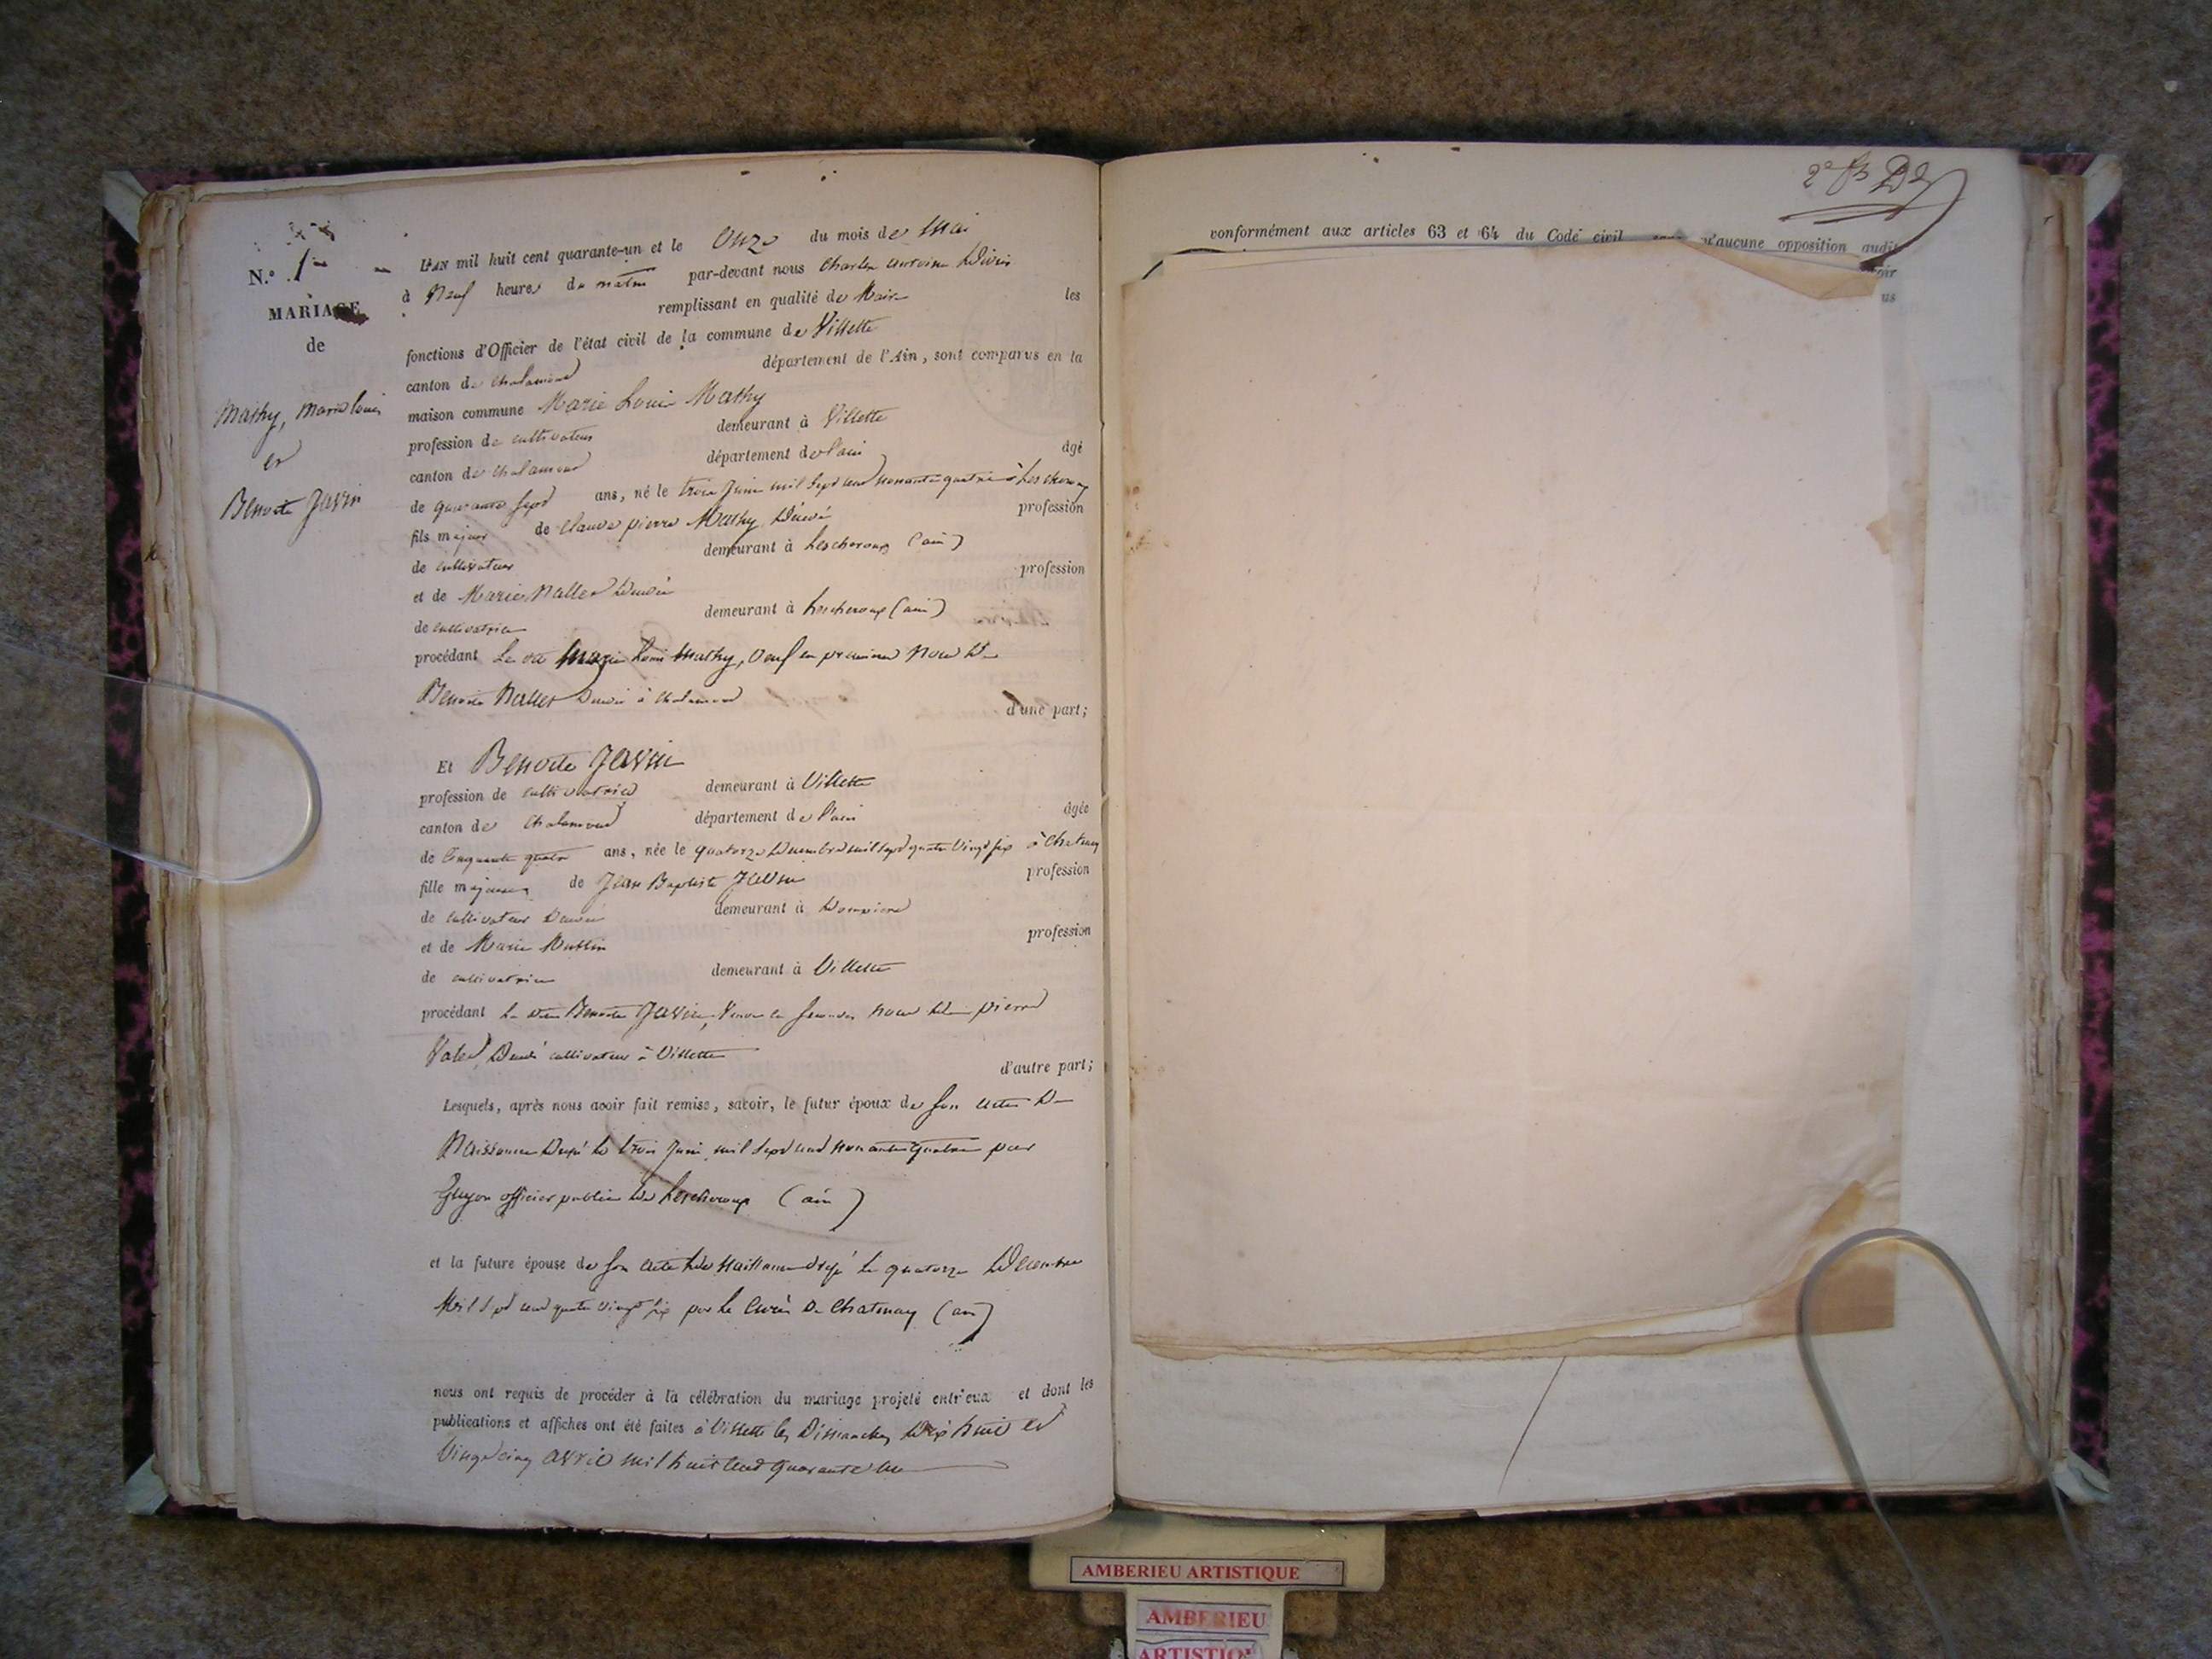 N.° 1
MARIAGE
de
Mathy, Marie Louis
et
Benoite Javin
L'AN mil huit cent quarante-un et le onze du mois de Mai
à Neuf heures du matin par-devant nous Charles Antoine
remplissant en qualité de Maire les
fonctions d'Officier de l'état civil de la commune de Villette
canton de Chalamont département de l'Ain, sont comparus en la
maison commune Marie Louis Mathy
profession de cultivateur demeurant à Villette
canton de Chalamont département de l'ain âgé
de quarante sept ans, né le trois juin mil sept cent nonante quatre à Lescheroux
fils majeur de Claude pierre Mathy Décédé profession
de cultivateur demeurant à Lescheroux (ain)
et de Marie Nallet Décédée profession
de cultivatrice demeurant à Lescheroux (ain)
procédant Le dit Marie Louis Mathy, veuf en premières Noces de
Benoite Nallet Décédée à Chalamont d'une part;
Et Benoite Javin
profession de cultivatrice demeurant à Villette
canton de Chalamont département de l'ain âgée
de Cinquante quatre ans, née le quatorze Décembre mil sept quatre vingt six à Chatenay
fille majeure de Jean Baptiste Javin profession
de cultivateur Décédé demeurant à Dompierre
et de Marie profession
de cultivatrice demeurant à Villette
procédant La dite Benoite Javin, Veuve en secondes noces de pierre
Décédé cultivateur à Villette d'autre part;
Lesquels, après nous avoir fait remise, savoir, le futur époux de son acte de
Naissance Dressé le trois juin mil sept cent nonante quatre par
Guyon officier public de Lescheroux (ain)
et la future épouse de son acte de Naissance dressé le quatorze Décembre
Mil sept cent quatre vingt six par le Curé de Chatenay (ain)
nous ont requis de procéder à la célébration du mariage projeté entr'eux et dont les
publications et affiches ont été faites à Villette les Dimanches Dix huit et
vingt cinq avril mil huit cent quarante un
conformément aux articles 63 et 64 du Code civil qu'aucune opposition audit
AMBERIEU ARTISTIQUE
AMBERIEU
ARTISTIQUE